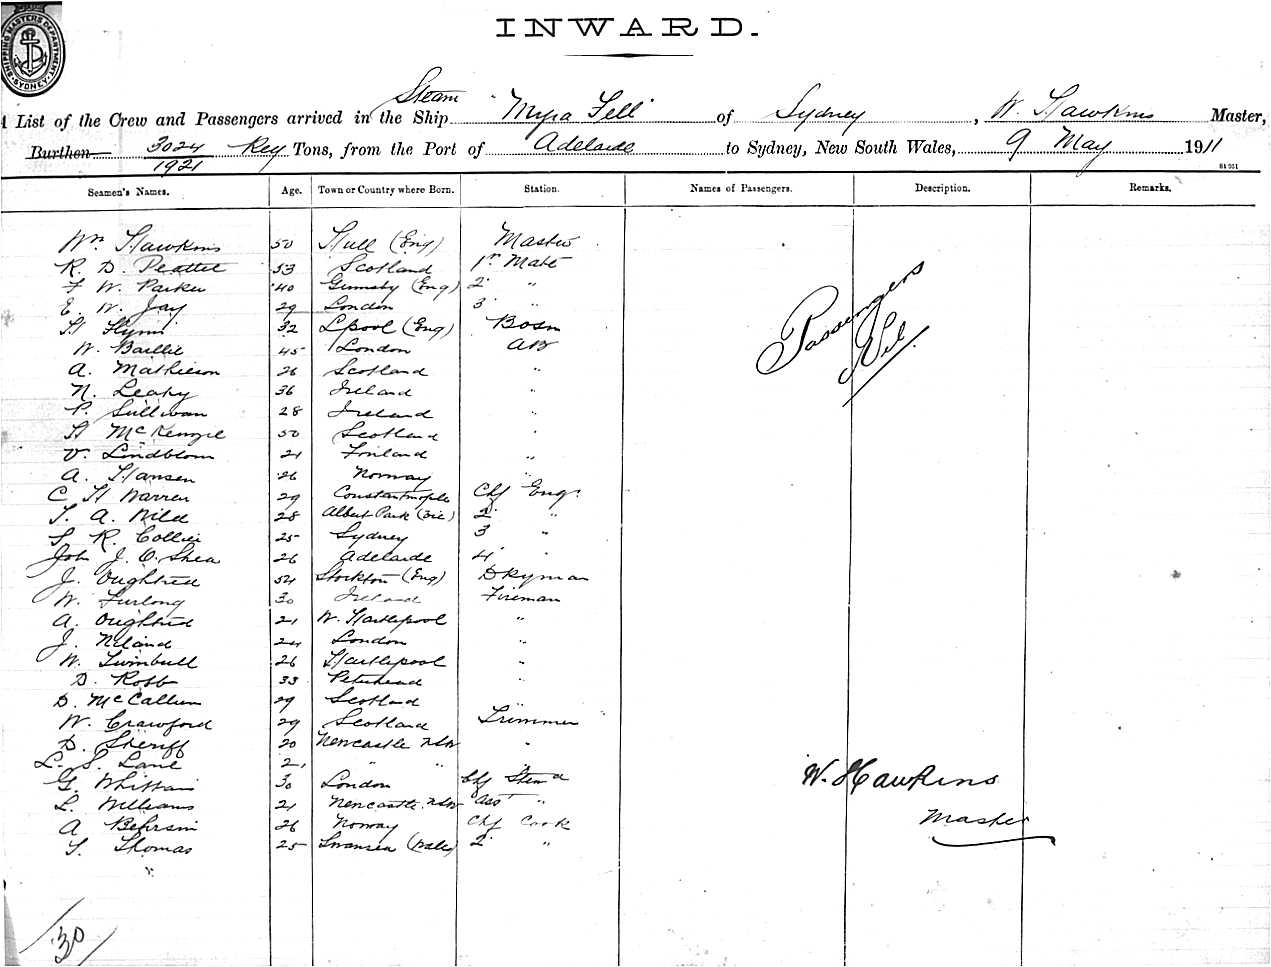 SHIPPING MASTERS DEPARTMENT · SYDNEY ·
INWARD.
Steam
A List of the Crew and Passengers arrived in the Ship "Myra Fell" of Sydney, W. Hawkins Master,
Burthen 3024 Reg Tons, from the Port of Adelaide to Sydney, New South Wales, 9 May 1911
1921
Seamen's Names. Age. Town or Country where Born. Station. Names of Passengers. Description. Remarks.
Wm Hawkins 50 Hull (Eng) Master
R. D. Peattie 53 Scotland 1st Mate
F W. Parker 40 Grimsby (Eng) 2 "
E. W. Jay 29 London 3 "
H Flynn 32 Lpool (Eng) Bosn
W. Baillie 45 London AB
A. Mathieson 26 Scotland "
N. Leahy 36 Ireland "
P. Sullivan 28 Ireland "
H McKenzie 50 Scotland "
V. Lindblom 21 Finland "
A. Hansen 26 Norway "
C H Warren 29 Constantinople Chf Engr
T. A. Wild 28 Albert Park (Vic) 2 "
S R. Collier 25 Sydney 3 "
Joh J. O. Shea 26 Adelaide 4 "
J. Oughtred 54 Stockton (Eng) Dkyman
W. Furlong 30 Ireland Fireman
A. Oughtred 21 W. Hartlepool "
J. Niland 24 London "
W. Turnbull 26 Hartlepool "
D. Robb 33 Peterhead "
D. McCallum 29 Scotland
W. Crawford 29 Scotland Trimmer
D. Sheriff 20 Newcastle NSW "
L. S. Lane 2, " "
G. Whittain 30 London Chf Stewd
L. Williams 21 Newcastle NSW Asst "
A Behrsin 26 Norway Chf Cook
T. Thomas 25 Swansea (Wales) 2 "
Passengers
Nil.
W. Hawkins
Master
30